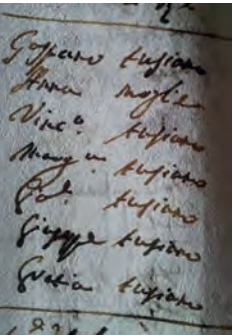 Gaspano tusiano
Anna moglie
Vinc.a tusiano
Marg.a tusiano
Gio: tusiano
Giuseppe tusiano
Grazia tusiano